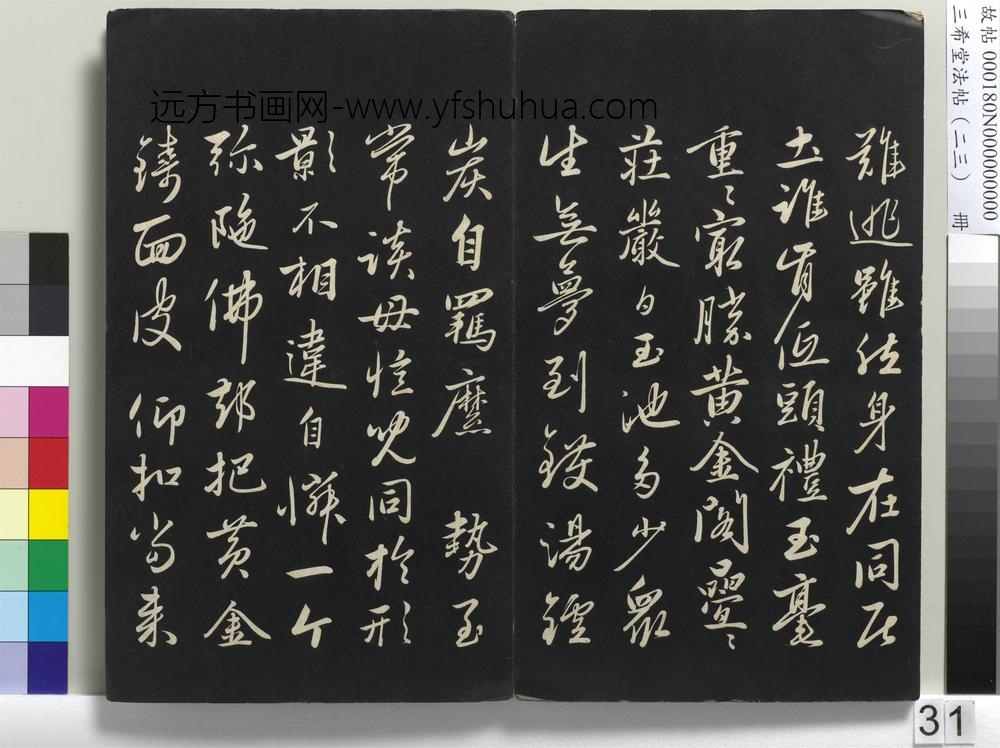 難逃雖然身在同居
土誰肯低頭禮玉毫
重〻寂勝黃金閣疊〻
莊嚴白玉池多少眾
生無夢到鑊湯鑪
炭自羈縻 勢至
常談毋憶兒同於形
影不相違自憐一个
弥陁佛却把黃金
鑄面皮 仰扣當來
远方书画网-www.yfshuhua.com
故帖 000180N000000000
三希堂法帖（二三） 冊
31